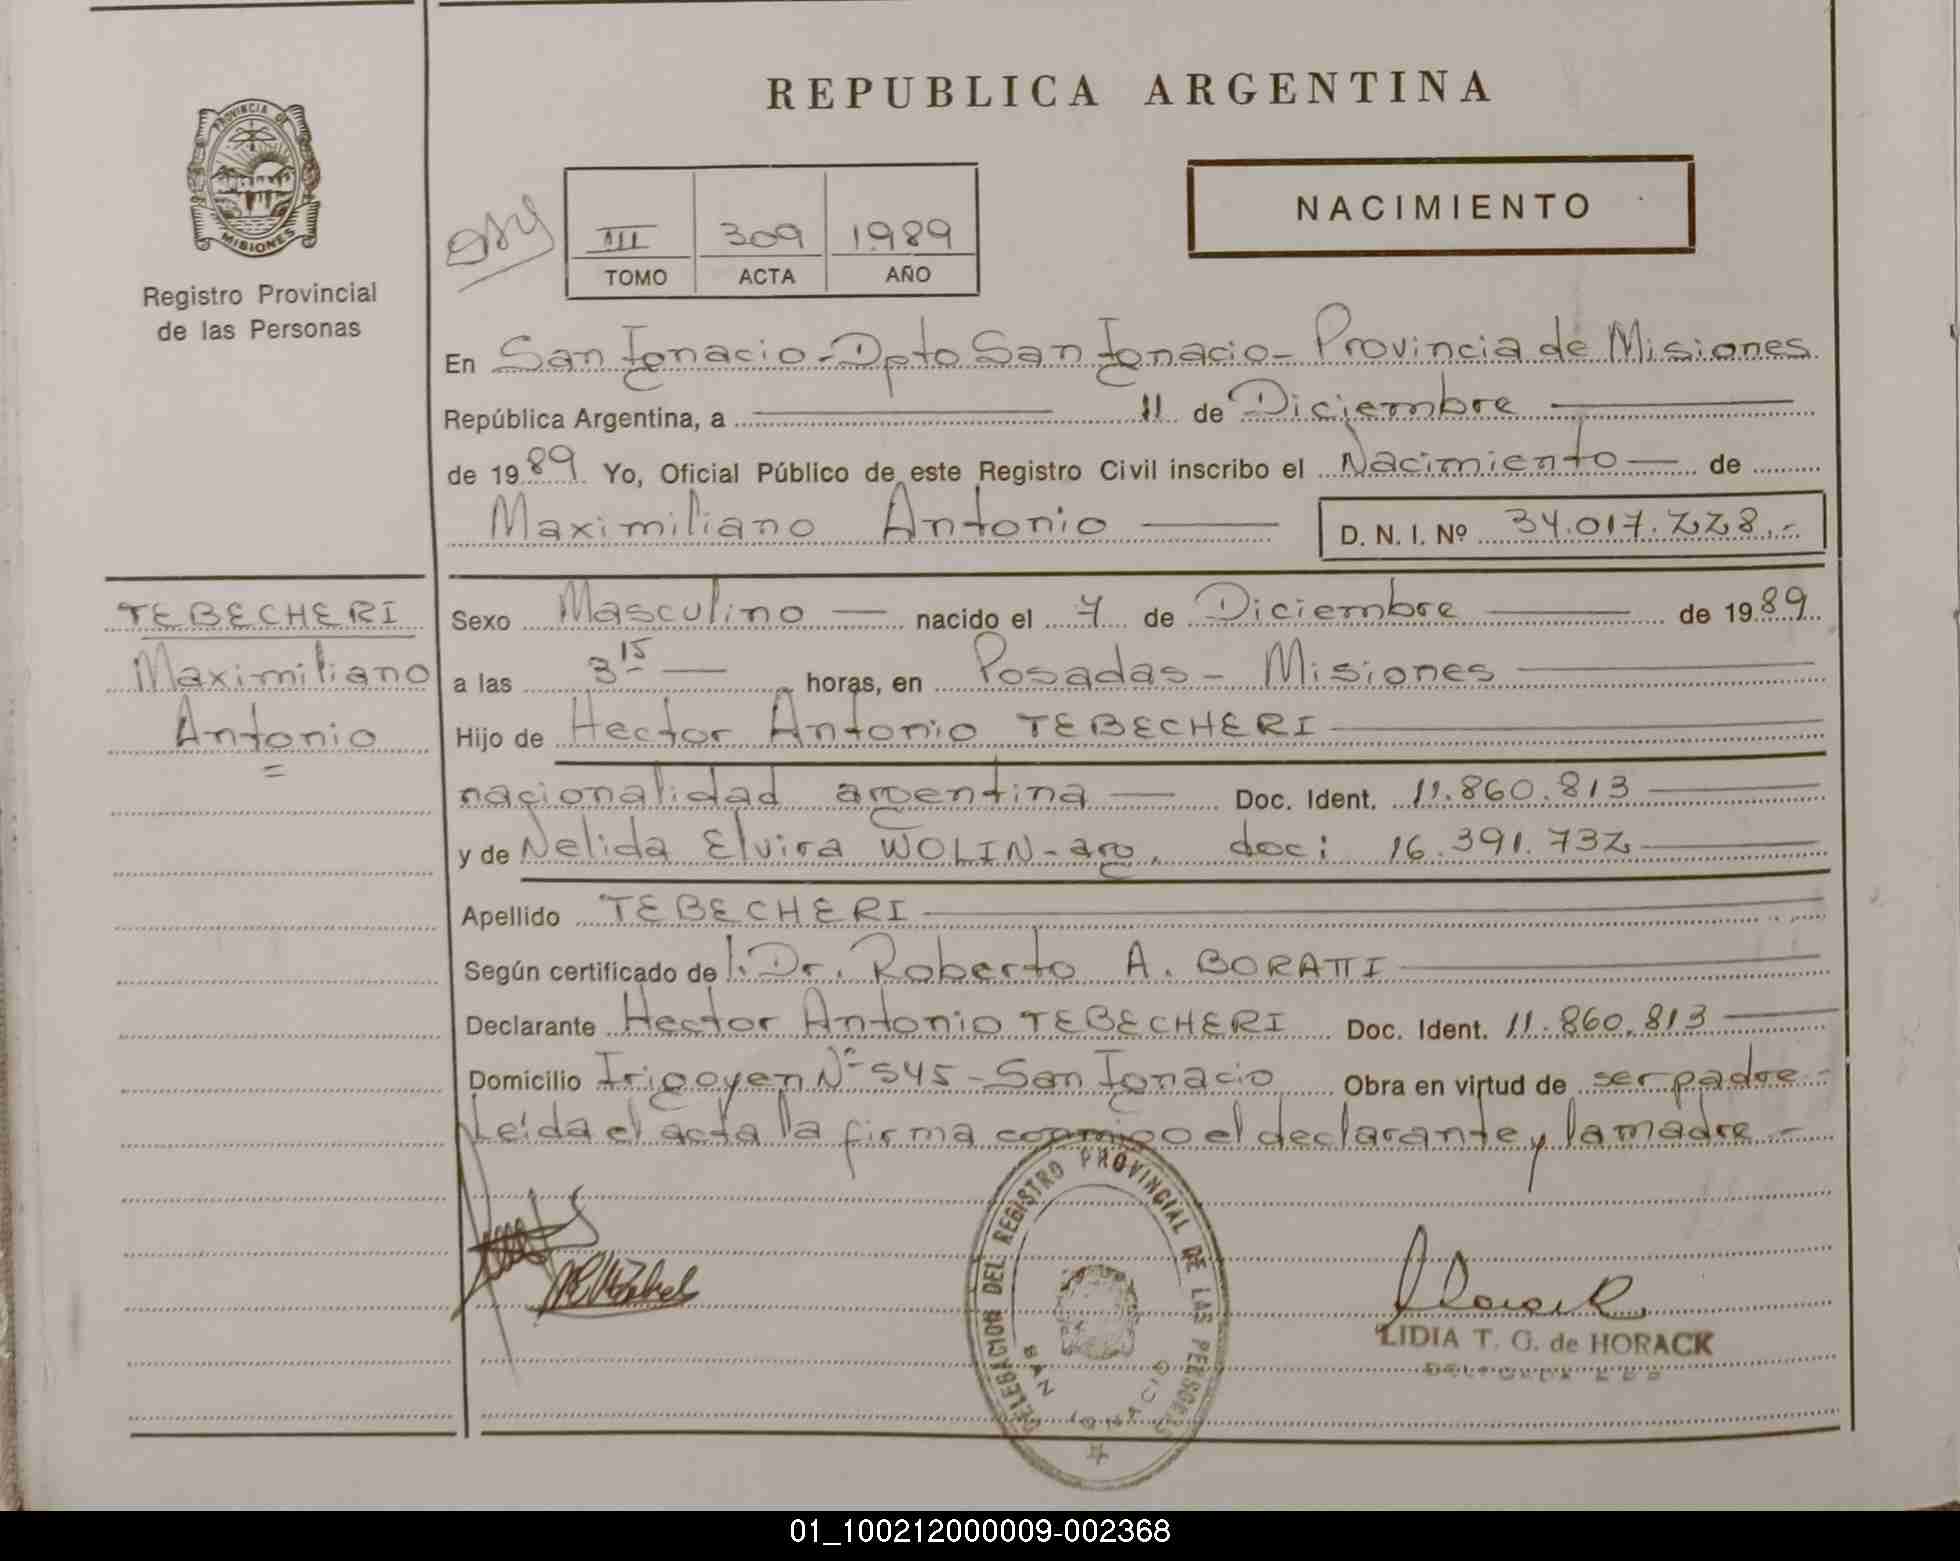 REPUBLICA ARGENTINA
PROVINCIA DE
MISIONES
Registro Provincial
de las Personas
III 309 1989
TOMO ACTA AÑO
NACIMIENTO
En San Ignacio - Dpto San Ignacio - Provincia de Misiones
República Argentina, a 11 de Diciembre
de 1989 Yo, Oficial Público de este Registro Civil inscribo el Nacimiento de
Maximiliano Antonio D. N. I. Nº 34.017.228.-
TEBECHERI
Maximiliano
Antonio
Sexo Masculino nacido el 7 de Diciembre de 1989
a las 3 15 horas, en Posadas - Misiones
Hijo de Hector Antonio TEBECHERI
nacionalidad argentina Doc. Ident. 11.860.813
y de Nelida Elvira WOLIN - arg. doc: 16.391.732
Apellido TEBECHERI
Según certificado de l. Dr. Roberto A. BORATTI
Declarante Hector Antonio TEBECHERI Doc. Ident. 11.860.813
Domicilio Irigoyen Nº 545 - San Ignacio Obra en virtud de ser padre -
Leída el acta la firma conmigo el declarante y la madre -
DELEGACION DEL REGISTRO PROVINCIAL DE LAS PERSONAS
SAN IGNACIO
LIDIA T. G. de HORACK
01_100212000009-002368